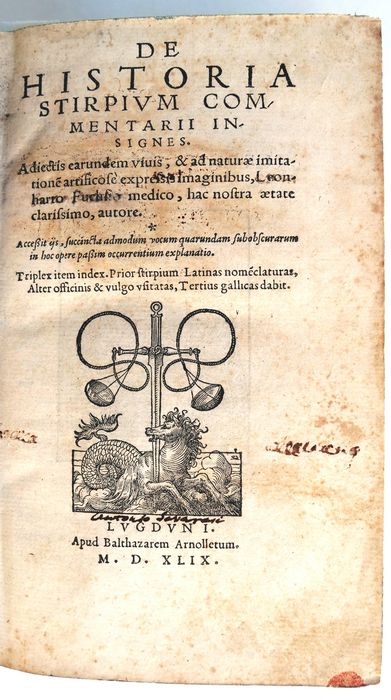 DE
HISTORIA
STIRPIVM COM-
MENTARII IN-
SIGNES.
Adiectis earundem viuis, & ad naturæ imita-
tionē artificose expressis imaginibus, Leon-
harto Fuchsio medico, hac nostra ætate
clarissimo, autore.
*
Accessit ijs, succincta admodum vocum quarundam subobscurarum
in hoc opere passim occurrentium explanatio.
Triplex item index. Prior stirpium Latinas nomēclaturas,
Alter officinis & vulgo vsitatas, Tertius gallicas dabit.
LVGDVNI.
Apud Balthazarem Arnolletum.
M. D. XLIX.